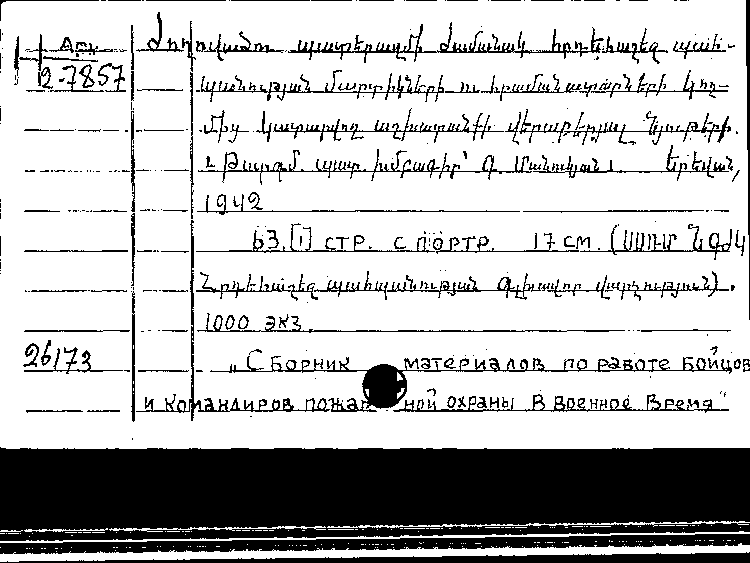 Арм
2-7857
Ժողովածու պատերազմի ժամանակ հրդեհաշեջ պահ-
պանության մարտիկների ու հրամանատարների կող-
մից կատարվող աշխատանքի վերաբերյալ նյութերի.
Թարգմ. պատ. խմբագիր՝ Գ. Մանուկյան. Երևան,
1942
63.[1] стр. с портр. 17 см. (ՍՍՌՄ ՆԳԺԿ
Հրդեհաշեջ պահպանության Գլխավոր վարչություն).
1000 экз.
26173
„Сборник материалов по работе бойцов
и командиров пожарной охраны в военное время"